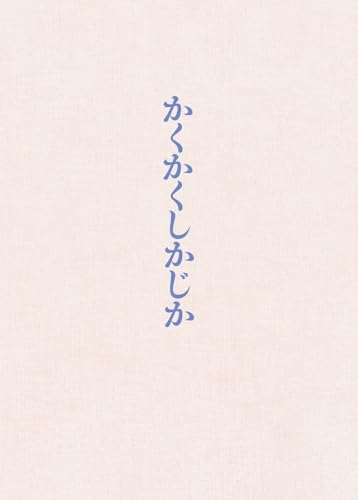 かくかくしかじか